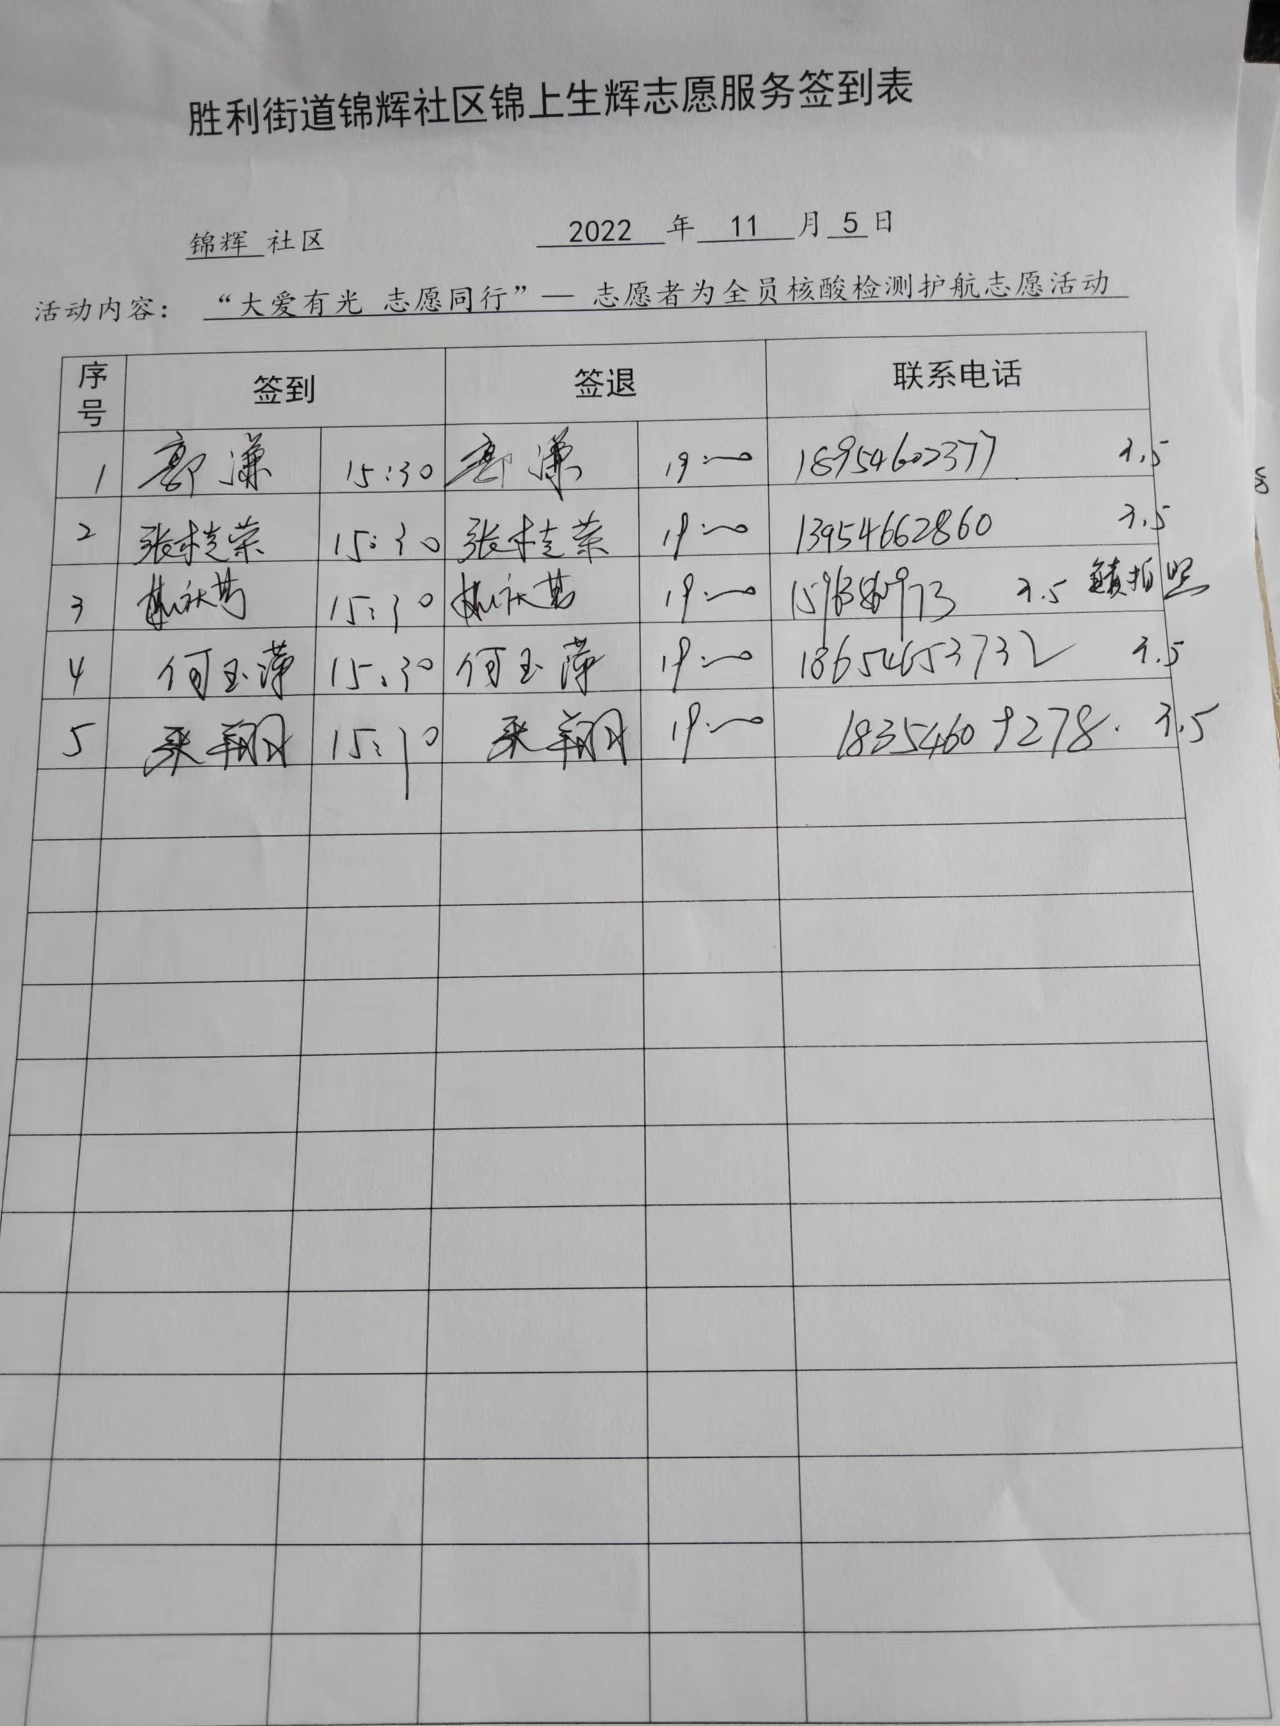 胜利街道锦辉社区锦上生辉志愿服务签到表
锦辉 社区 2022 年 11 月 5 日
活动内容: “大爱有光 志愿同行”— 志愿者为全员核酸检测护航志愿活动
序号 签到 签退 联系电话
1 郭谦 15:30 郭谦 19:00 18954602377 3.5
2 张桂荣 15:30 张桂荣 19:00 13954662860 3.5
3 15:30 19:00 3.5 拍照
4 何玉萍 15:30 何玉萍 19:00 18654653732 3.5
5 翔 15:30 翔 19:00 18354609278. 3.5